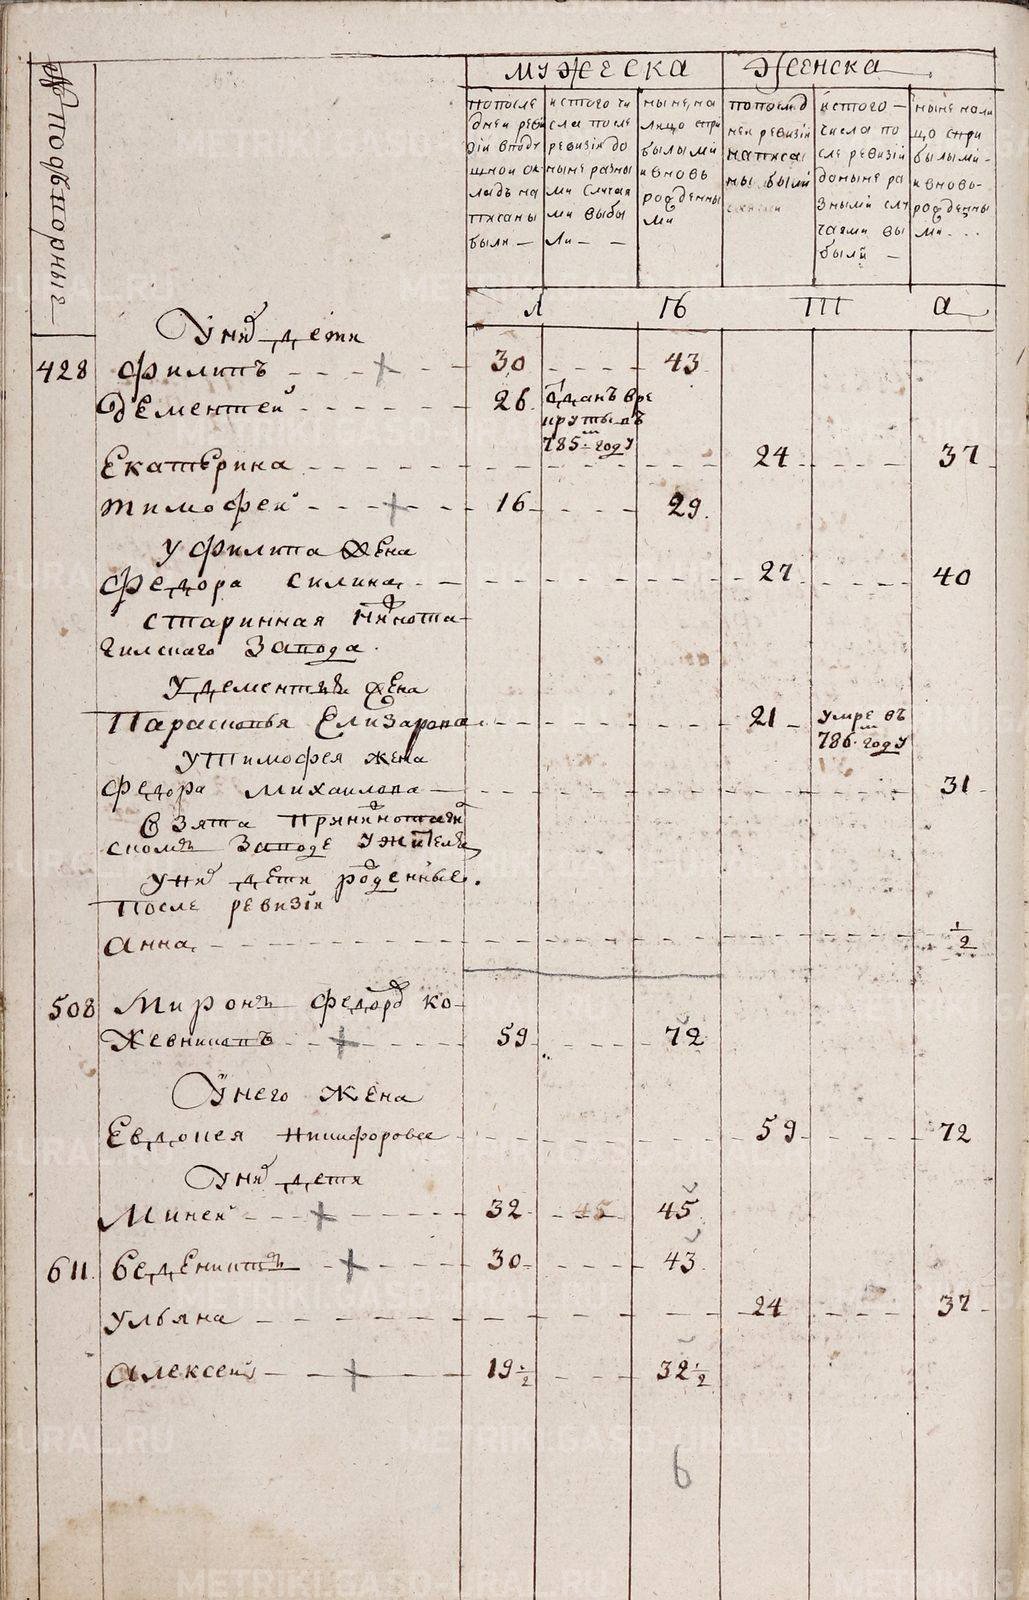 № подворныя
мужеска
женска
по после
дней реви
зiи в поду
шной ок
ладъ на
писаны
были —
ис того чи
сла после
ревизiи до
ныне разны
ми случая
ми выбы
ли — —
ныне на
лицо с при
былыми
и вновь
рожденны
ми
по послед
ней ревизiи
написа
ны были
ис того —
числа по
сле ревизiи
доныне ра
зными слу
чаями вы
были —
ныне нали
цо с при
былыми
и вновь
рожденны
ми
л
ѣ
т
а
У них дети
428 Филипъ 30 43
Дементей 26 Отданъ в ре
круты въ
785м году
Екатерина 24 37
Тимофей 16 29
У Филипа жена
Федора Силина 27 40
старинная Нижнота
гилскаго завода
У Дементья жена
Парасковья Елизарова 21 умре въ
786м году
У Тимофея жена
Федора Михаилова 31
взята при Нижнотаги
скомъ заводе у жителя
У них дети рожденные
после ревизiи
Анна 1/2
508 Миронъ Федоров Ко
жевниковъ 59 72
У него жена
Евдокея Никифоровее 59 72
У них дети
Миней 32 45 45
611 Бедениктъ 30 43
Ульяна 24 37
Алексей 19 1/2 32 1/2
6
METRIKI.GASO-URAL.RU